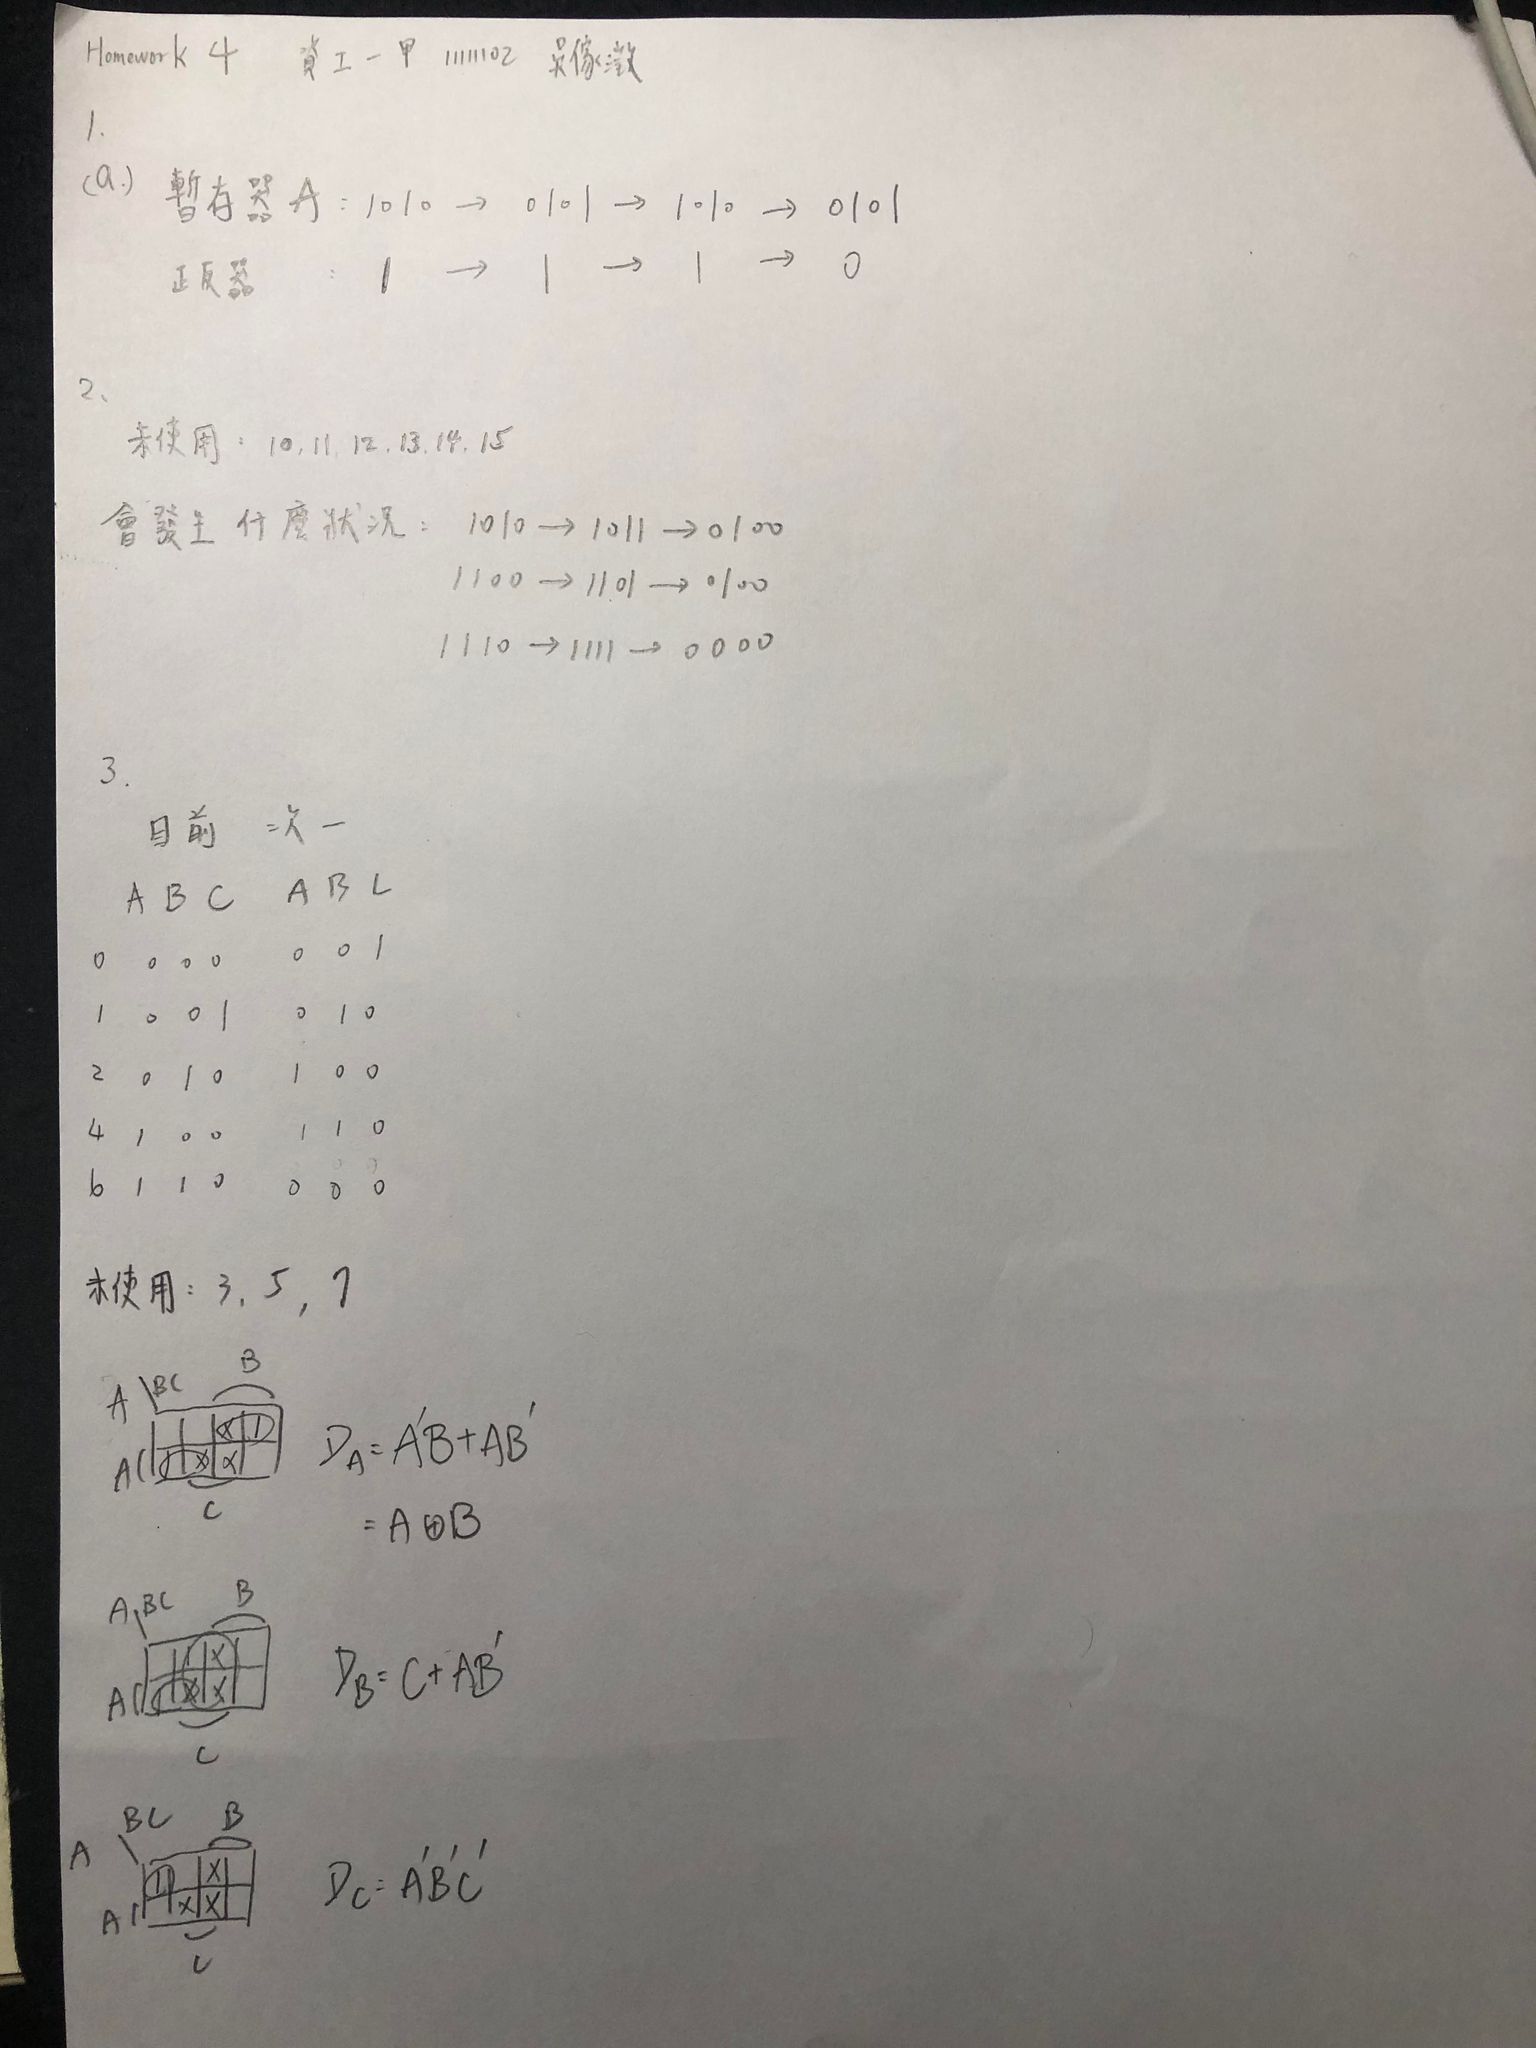 Homework 4 資工一甲 1111102 吳傢澂
1.
(a.) 暫存器 A : 1010 → 0101 → 1010 → 0101
正反器 : 1 → 1 → 1 → 0
2、
未使用 : 10, 11, 12, 13, 14, 15
會發生什麼狀況 : 1010 → 1011 → 0100
1100 → 1101 → 0100
1110 → 1111 → 0000
3.
目前 次一
A B C A B C
0 0 0 0 0 0 1
1 0 0 1 0 1 0
2 0 1 0 1 0 0
4 1 0 0 1 1 0
6 1 1 0 0 0 0
未使用 : 3, 5, 7
B
A \ BC
X 1
A 1 X X
C
D_A = A'B + AB'
= A ⊕ B
B
A \ BC
1 X
A 1 X X
C
D_B = C + AB'
BC B
A
1 X
A X X
C
D_C = A'B'C'